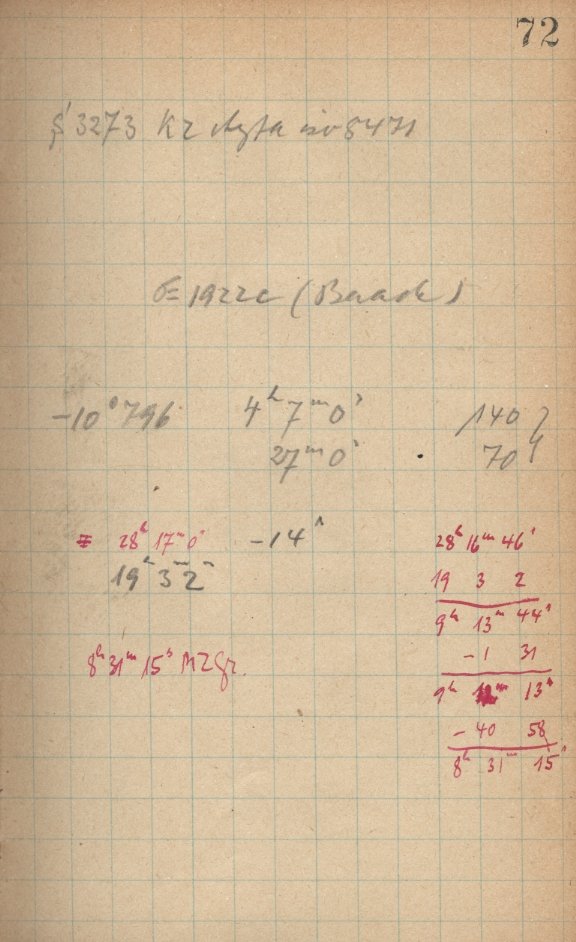 72
3273 Kz
1922c (Baade)
-10°796 4ʰ 7ᵐ 0ˢ 140
27ᵐ 0ˢ 70
28ʰ 17ᵐ 0ˢ -14ˢ
19ʰ 3ᵐ 2ˢ
8ʰ 31ᵐ 15ˢ MZGr.
28ʰ 16ᵐ 46ˢ
19 3 2
9ʰ 13ᵐ 44ˢ
-1 31
9ʰ 13ˢ
-40 58
8ʰ 31ᵐ 15ˢ